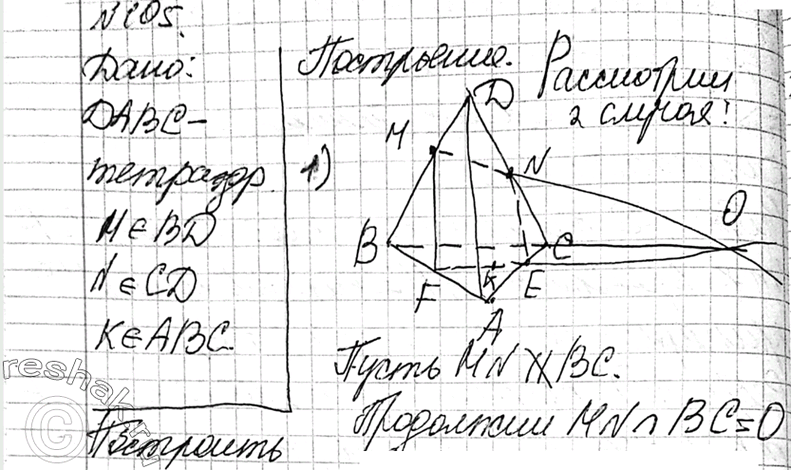 N105.
Дано:
DABC-
тетраэдр.
M∈BD
N∈CD
K∈ABC
Построить
Построение.
Рассмотрим
2 случая:
1)
D
M
N
O
B
C
K
E
F
A
Пусть MN ∦ BC.
Продолжим MN∩BC=O
reshak.ru